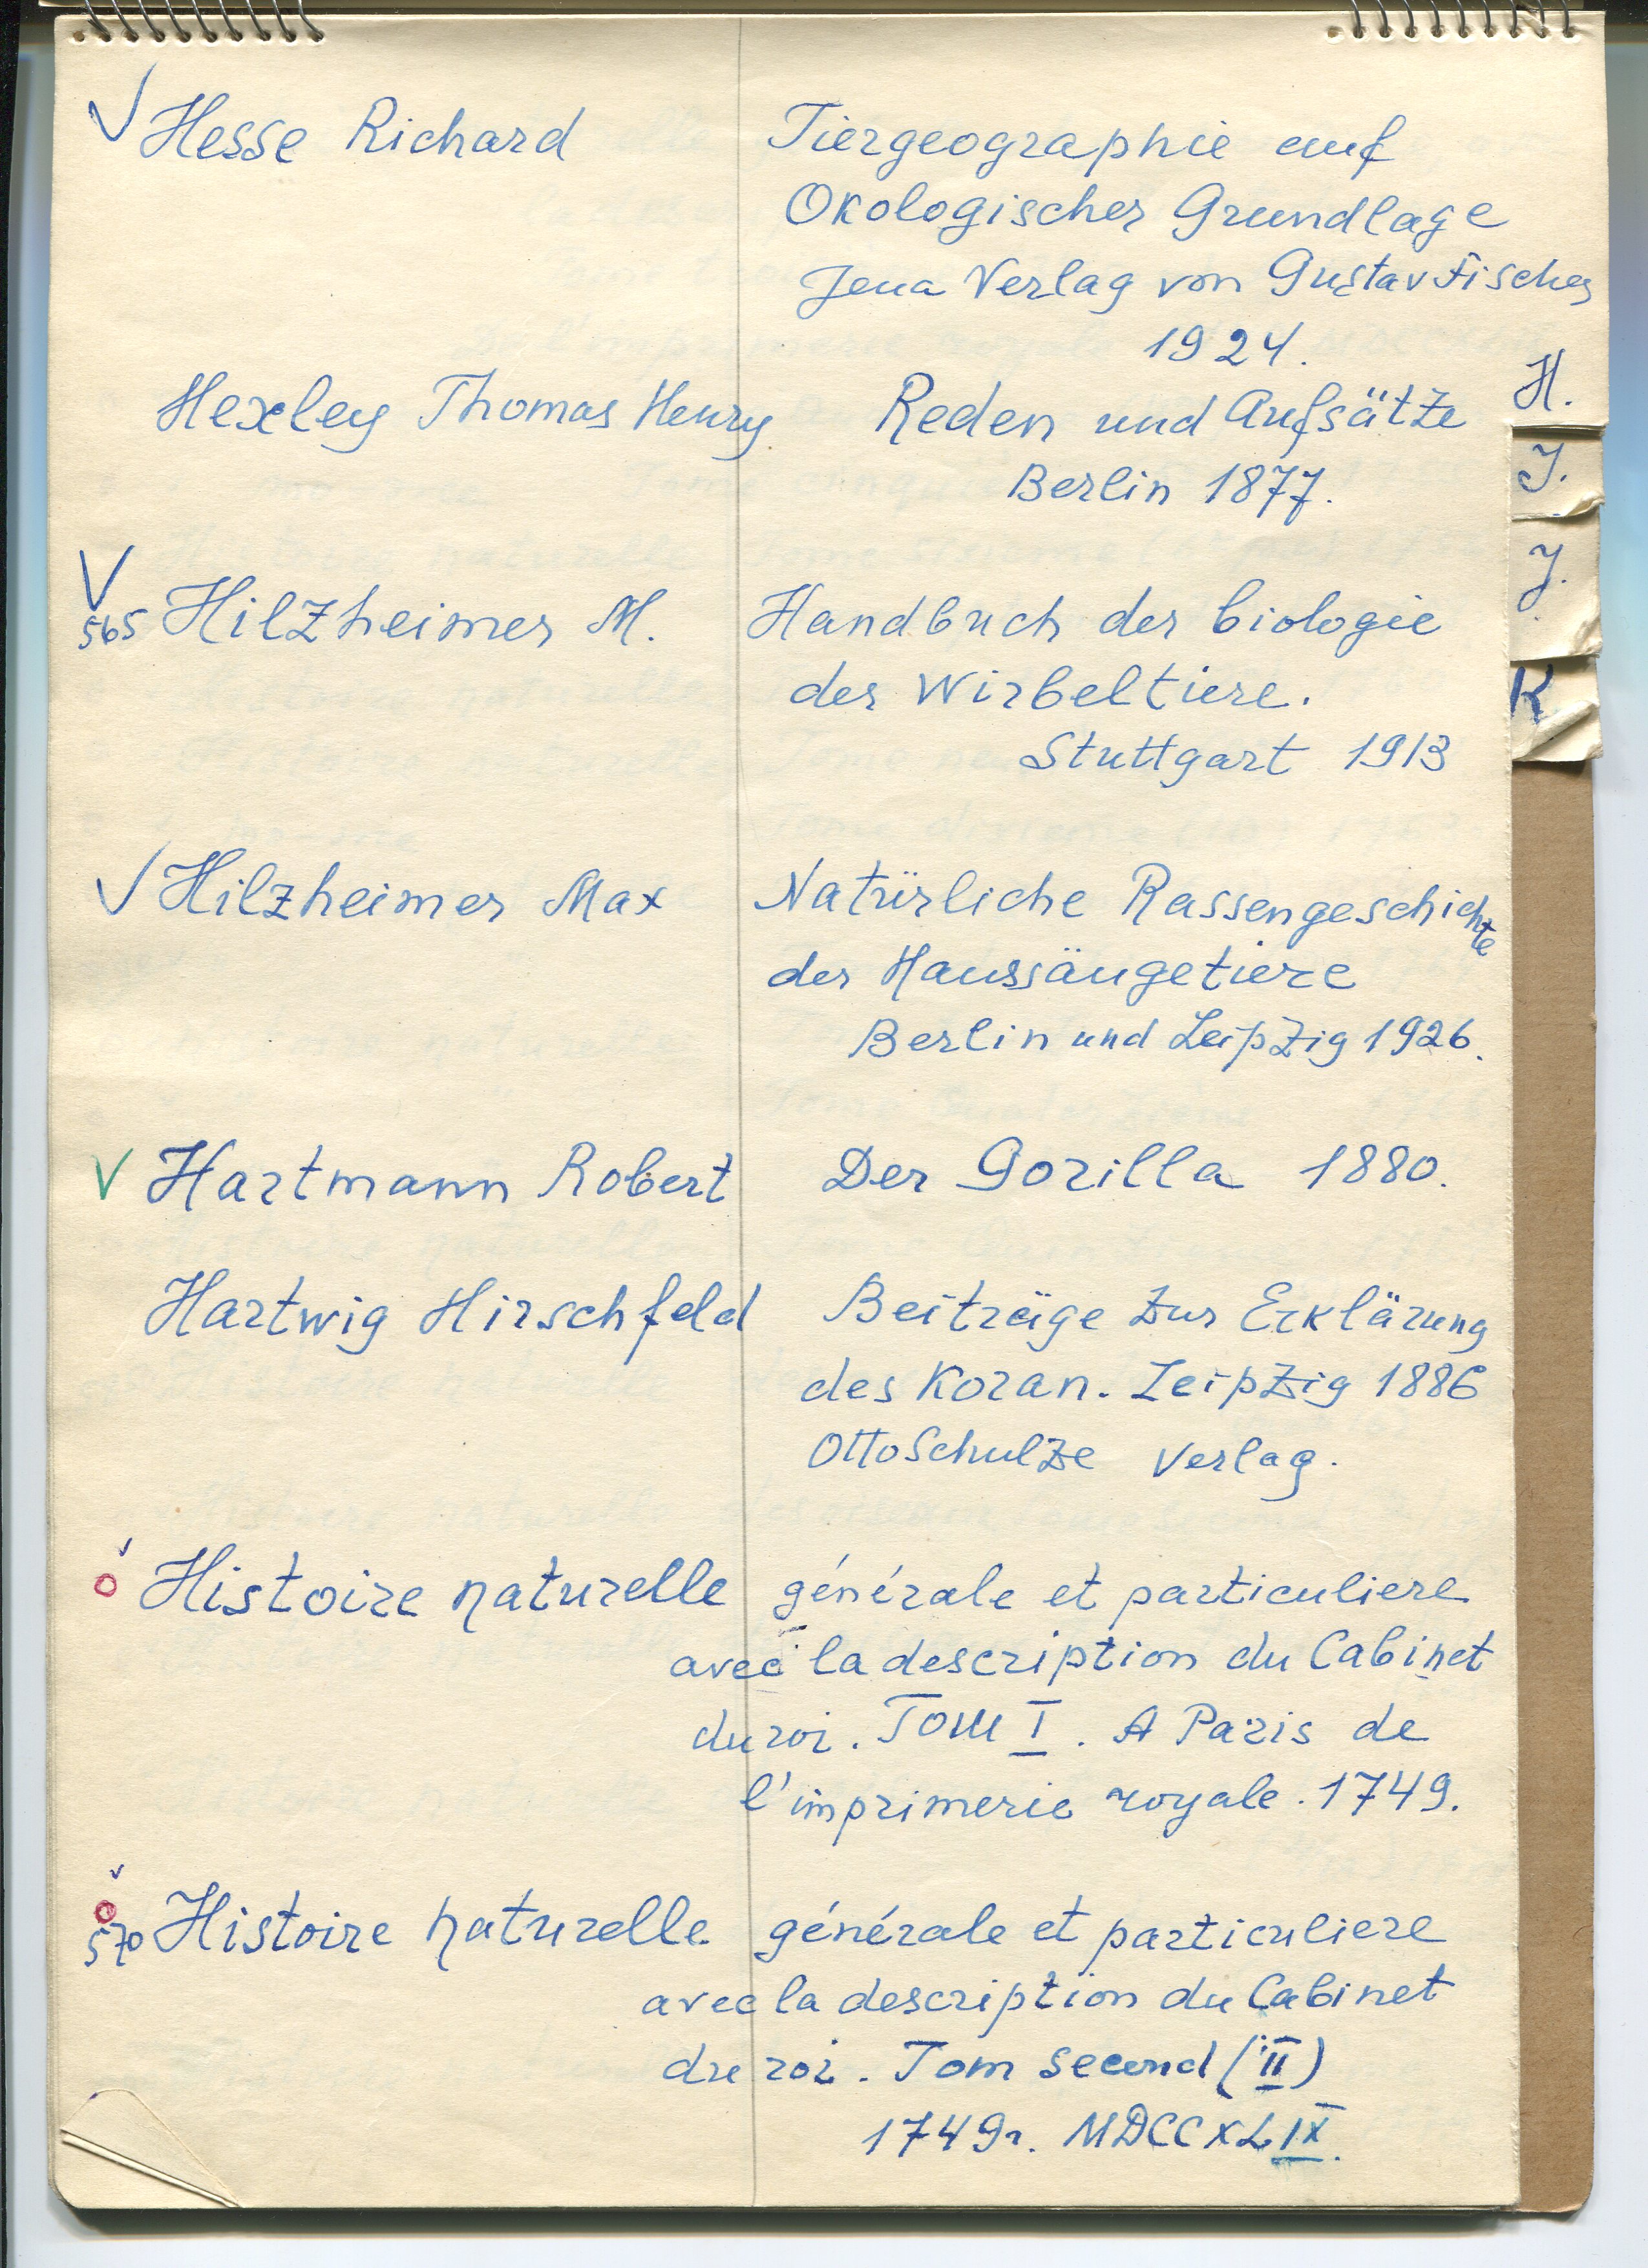 V Hesse Richard Tiergeographie auf
Okologischer Grundlage
Jena Verlag von Gustav Fischer
1924.
Hexley Thomas Henry Reden und Aufsätze
Berlin 1877.
H.
J.
J.
K
V
565 Hilzheimer M. Handbuch der biologie
der Wirbeltiere.
Stuttgart 1913
V Hilzheimer Max Natürliche Rassengeschichte
der Haussäugetiere
Berlin und Leipzig 1926.
V Hartmann Robert Der Gorilla 1880.
Hartwig Hirschfeld Beiträge zur Erklärung
des Koran. Leipzig 1886
Otto Schulze Verlag.
v
o Histoire naturelle générale et particuliere
avec la description du Cabinet
du roi. Tom I. A Paris de
l'imprimerie royale. 1749.
v
o
570 Histoire naturelle générale et particuliere
avec la description du Cabinet
du roi. Tom second (II)
1749r. MDCCXLIX.